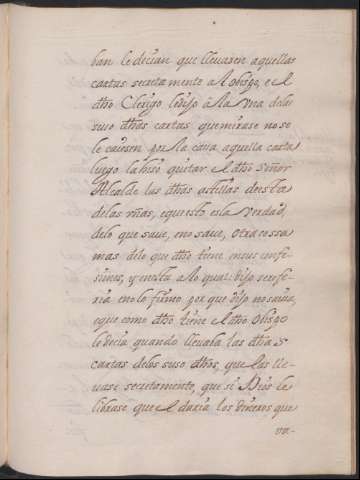 ban le decian que lleuasen aquellas
cartas secretamente a el obispo, e el
dho Clerigo le dijo a la ora delas
suso dhas cartas que mirase no se
le caiesen por la caua aquella carta
luego la hiso quitar el dho señor
Alcalde las dhas astillas de esta
delas mãs, e que esto es la verdad,
delo que saue, e no saue, otra cossa
mas delo que dho tiene en sus confe
siones, y en esta a lo qual dijo se refe-
ria e no lo firmo por que dijo no sauia,
e que como dho tiene el dho Obispo
le decia quando lleuaba las dhas
cartas delos suso dhos, que las lle-
uase secretamente, que si Dios le
librase que el daria los dineros que